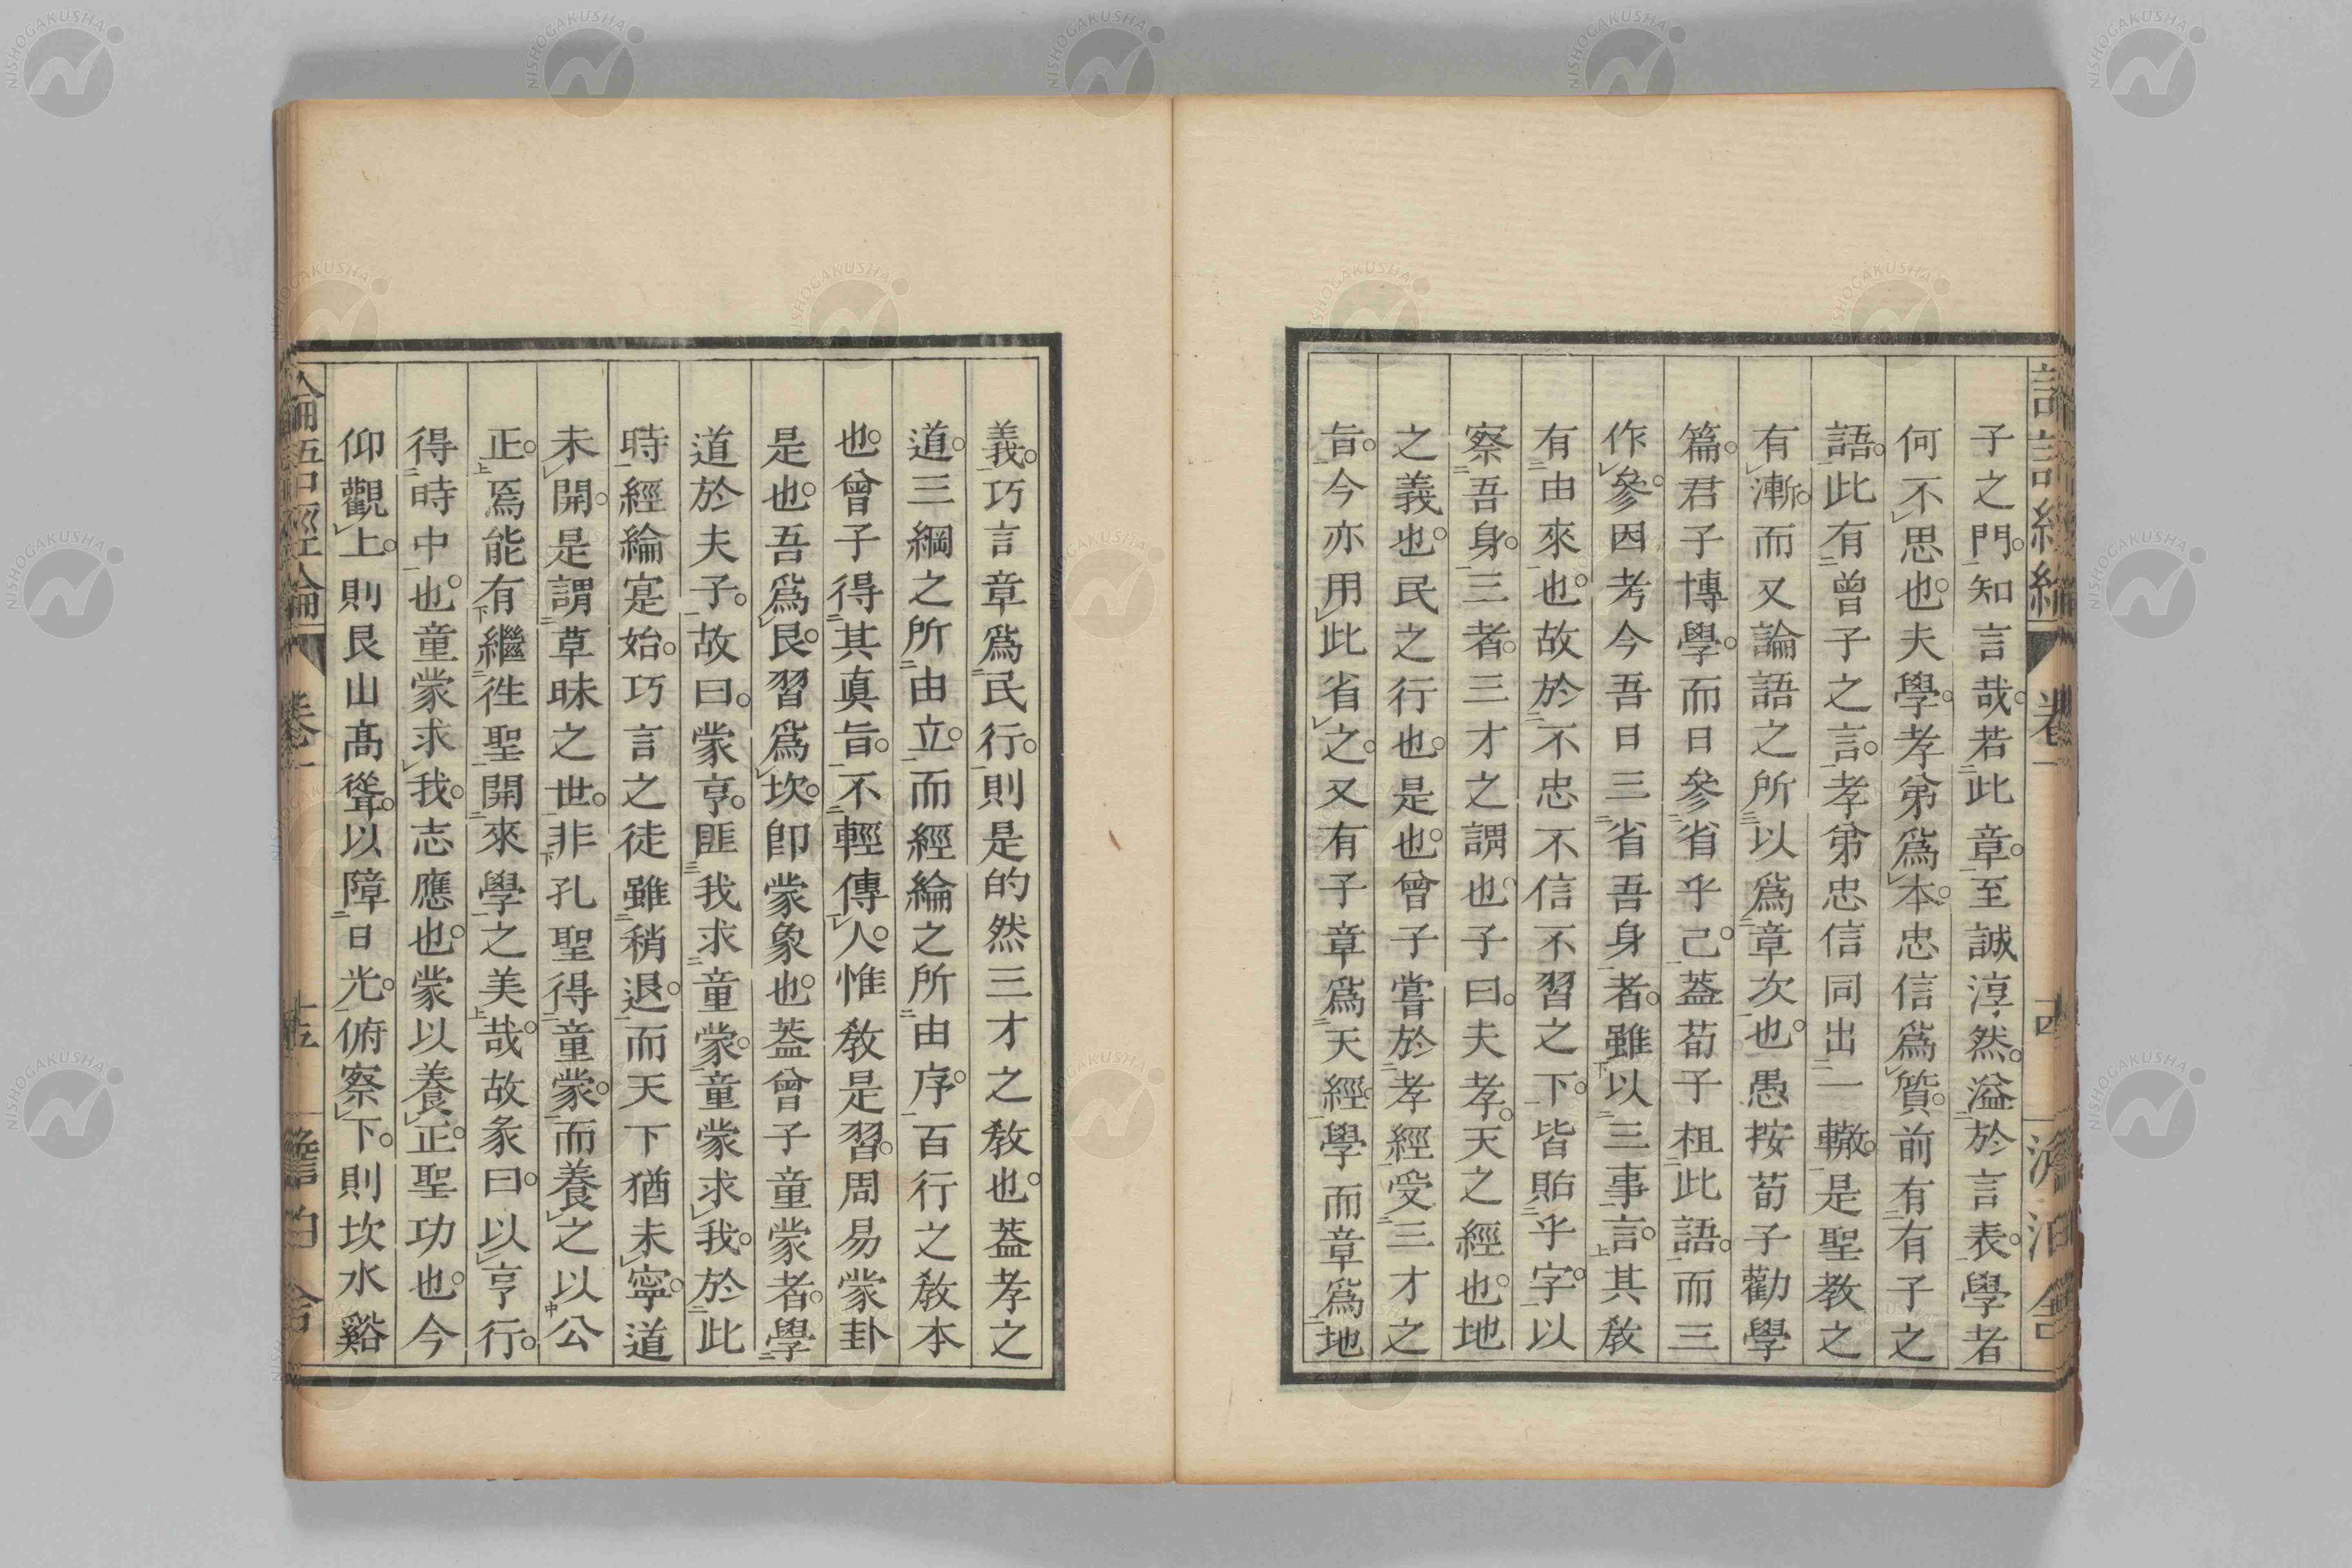 子之門。知言哉。若此章。至誠淳然。溢於言表。學者
何不思也。夫學。孝弟爲本。忠信爲質。前有有子之
語。此有曾子之言。孝弟忠信同出一轍。是聖教之
有漸。而又論語之所以爲章次也。愚按荀子勸學
篇。君子博學。而日參省乎己。蓋荀子柤此語。而三
作參。因考今吾日三省吾身者。雖以三事言。其敎
有由來也。故於不忠不信不習之下。皆貽乎字。以
察吾身。三者。三才之謂也。子曰。夫孝。天之經也。地
之義也。民之行也。是也。曾子嘗於孝經受三才之
旨。今亦用此省之。又有子章爲天經。學而章爲地
義。巧言章爲民行。則是的然三才之敎也。蓋孝之
道。三綱之所由立。而經綸之所由序。百行之敎本
也。曾子得其眞旨。不輕傳人。惟敎是習。周易蒙卦
是也。吾爲艮。習爲坎。卽蒙象也。蓋曾子童蒙者。學
道於夫子。故曰。蒙亨。匪我求童蒙。童蒙求我。於此
時經綸寔始。巧言之徒雖稍退。而天下猶未寧。道
未開。是謂草昧之世。非孔聖得童蒙。而養之以公
正。焉能有繼徃聖開來學之美哉。故彖曰。以亨行。
得時中也。童蒙求我。志應也。蒙以養正。聖功也。今
仰觀上。則艮山高聳。以障日光。俯察下。則坎水谿
論語經綸
卷一
十五
澹泊舍
卷一
澹泊舍
NISHOGAKUSHA